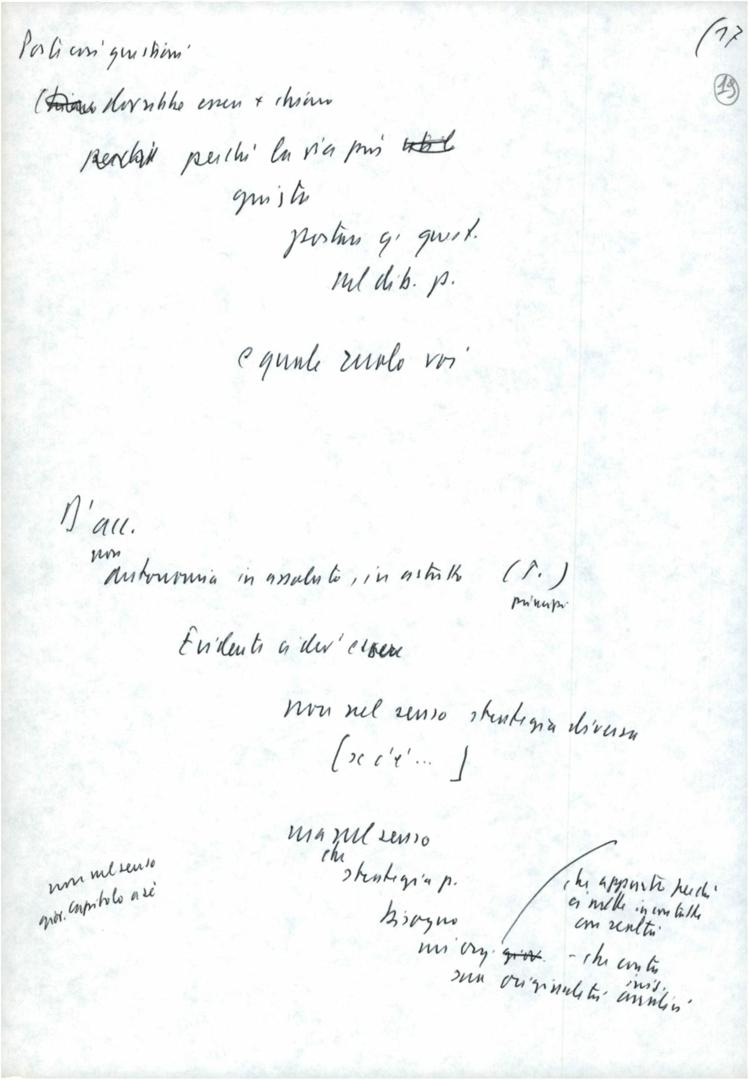 (17
19
Porti così questioni
dovrebbe essere + chiaro
perché la via più
giusta
portare q. quest.
sul dib. p.
e quale ruolo voi
D'acc.
non
autonomia in assoluto, in astratto (T.)
principi
Evidente ci dev'essere
non nel senso strategia diversa
[se c'è ... ]
ma nel senso
che
strategia p.
bisogno
non nel senso
giov. capitolo a sé
che appunto perché
ci mette in contatto
con realtà
- che conta
sua originalità